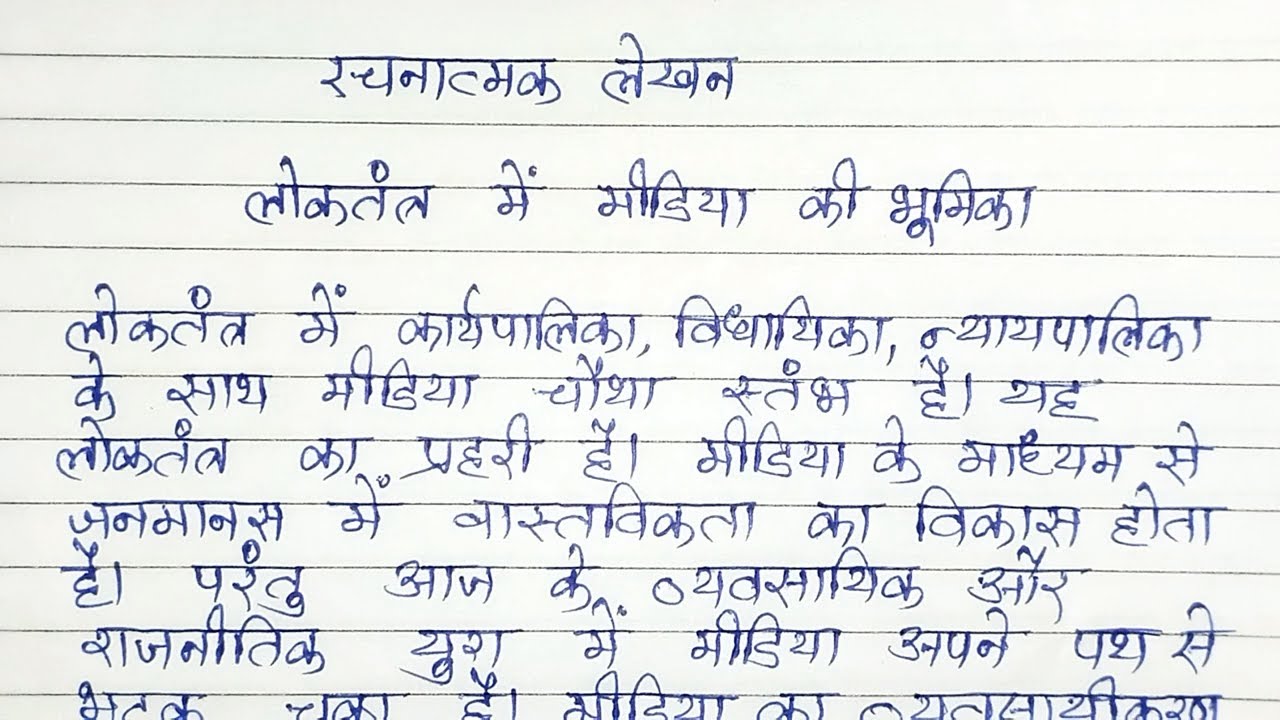 रचनात्मक लेखन
लोकतंत्र में मीडिया की भूमिका
लोकतंत्र में कार्यपालिका, विधायिका, न्यायपालिका
के साथ मीडिया चौथा स्तंभ है। यह
लोकतंत्र का प्रहरी है। मीडिया के माध्यम से
जनमानस में वास्तविकता का विकास होता
है। परंतु आज के व्यवसायिक और
राजनीतिक युग में मीडिया अपने पथ से
भटक चुका है। मीडिया का व्यवसायीकरण